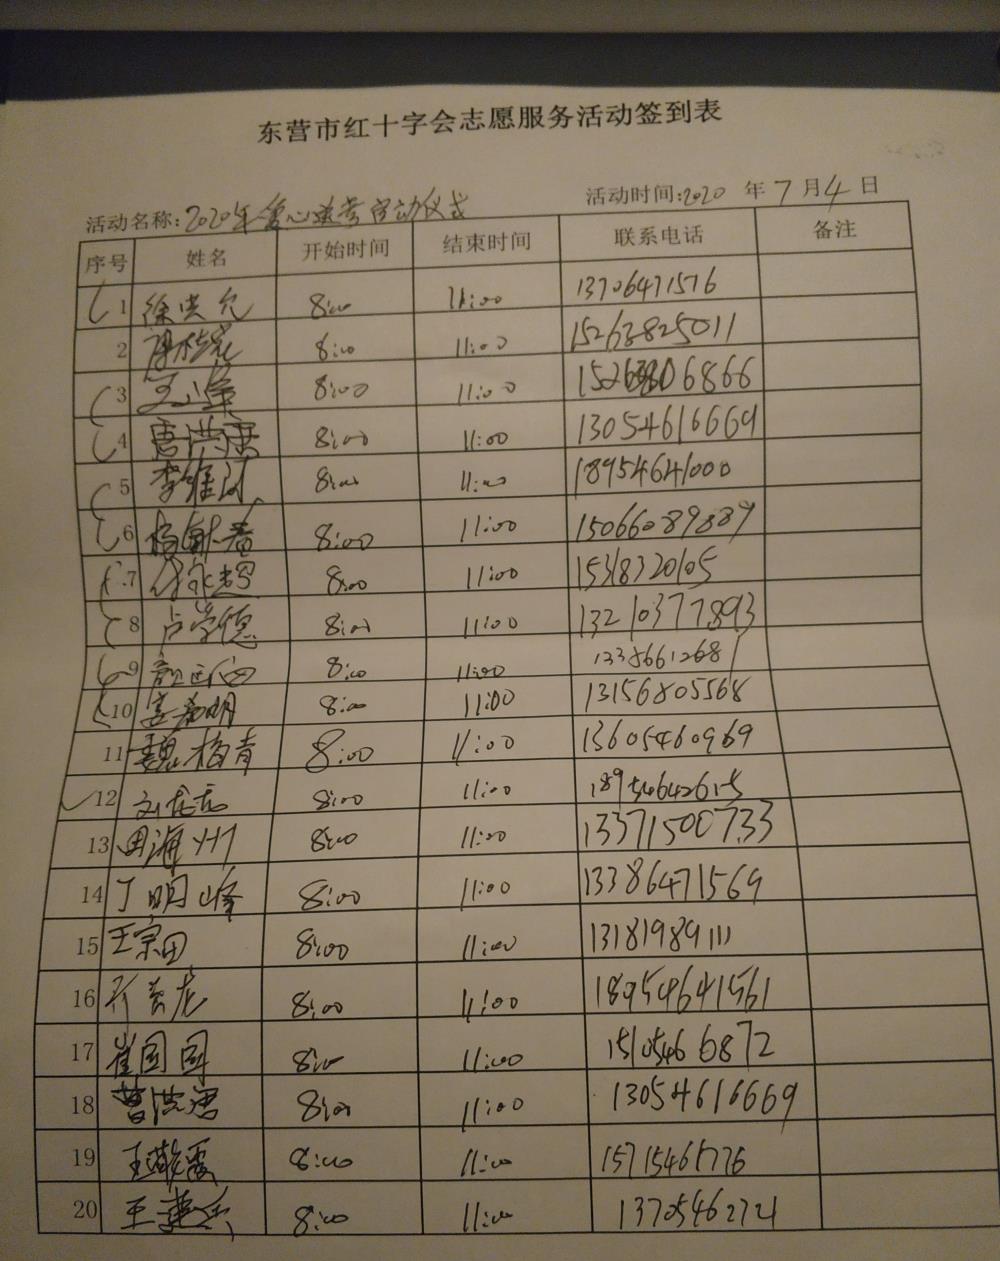 东营市红十字会志愿服务活动签到表
活动名称:2020年爱心送考启动仪式 活动时间:2020 年 7 月 4 日
序号 姓名 开始时间 结束时间 联系电话 备注
1 徐洪允 8:00 11:00 13706471576
2 8:00 11:00 15263825011
3 8:00 11:00
4 曹洪勇 8:00 11:00 13054616669
5 李维政 8:00 11:00 18954641000
6 杨献春 8:00 11:00 15066089889
7 8:00 11:00 15318320105
8 卢学德 8:00 11:00 13210377893
9 8:00 11:00 13356612681
10 姜希明 8:00 11:00 13156805568
11 魏梅青 8:00 11:00 13605460969
12 刘龙龙 8:00 11:00 18954642615
13 田海州 8:00 11:00 13371500733
14 丁明峰 8:00 11:00 13386471569
15 王宗田 8:00 11:00 13181989111
16 8:00 11:00 18954641561
17 崔国国 8:00 11:00 15105466872
18 8:00 11:00 13054616669
19 王乾霞 8:00 11:00 15715461776
20 8:00 11:00 13705462721